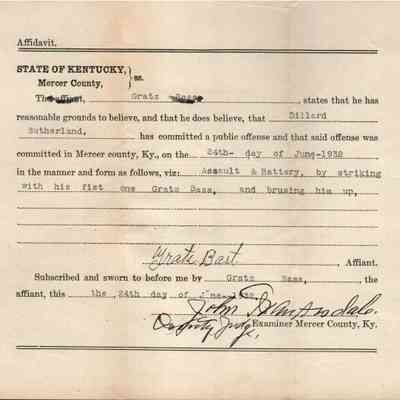 Affidavit.
STATE OF KENTUCKY,
Mercer County, } ss.
The affiant, Gratz Bass, states that he has
reasonable grounds to believe, and that he does believe, that Dillard
Sutherland, has committed a public offense and that said offense was
committed in Mercer county, Ky., on the 24th- day of June-1932
in the manner and form as follows, viz: Assault & Battery, by striking
with his fist one Gratz Bass, and brusing him up,
Gratz Bast, Affiant.
Subscribed and sworn to before me by Gratz Bass, the
affiant, this the 24th day of June-1932
John
Deputy Judge, Examiner Mercer County, Ky.